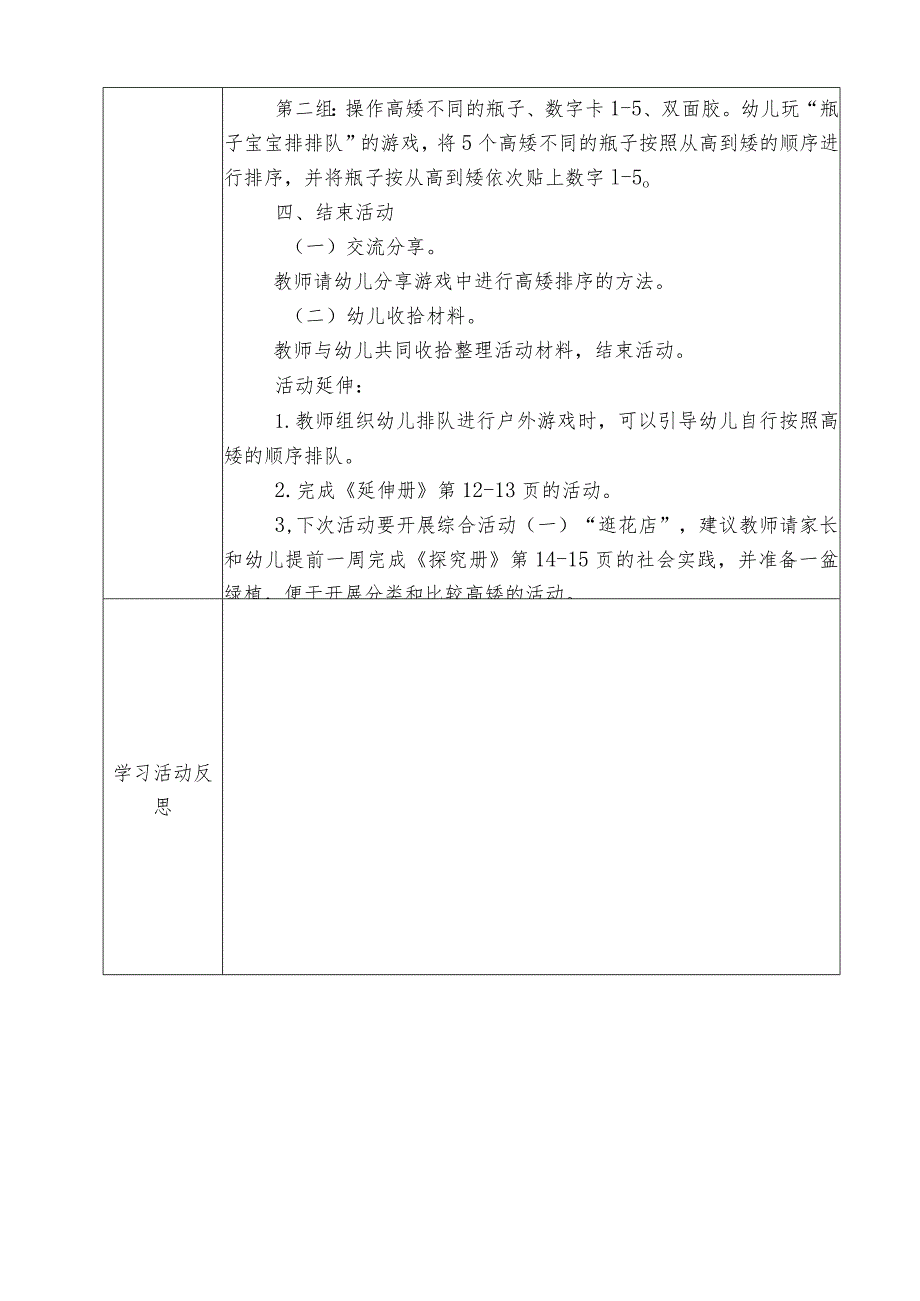 第二组：操作高矮不同的瓶子、数字卡1-5、双面胶。幼儿玩“瓶
子宝宝排排队”的游戏，将5个高矮不同的瓶子按照从高到矮的顺序进
行排序，并将瓶子按从高到矮依次贴上数字l-5。
四、结束活动
（一）交流分享。
教师请幼儿分享游戏中进行高矮排序的方法。
（二）幼儿收拾材料。
教师与幼儿共同收拾整理活动材料，结束活动。
活动延伸：
1.教师组织幼儿排队进行户外游戏时，可以引导幼儿自行按照高
矮的顺序排队。
2.完成《延伸册》第12-13页的活动。
3,下次活动要开展综合活动（一）“逛花店”，建议教师请家长
和幼儿提前一周完成《探究册》第14-15页的社会实践，并准备一盆
绿植，便于开展分类和比较高矮的活动。
学习活动反
思